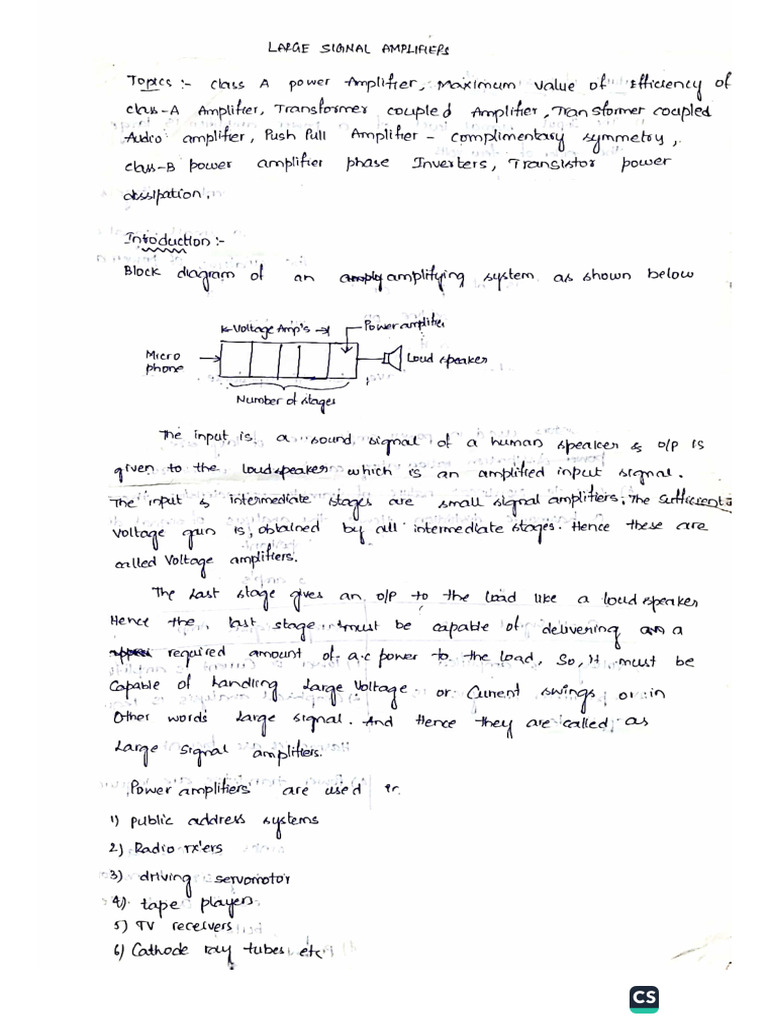 LARGE SIGNAL AMPLIFIERS
Topics :- class A power Amplifier, Maximum value of Efficiency of
class-A Amplifier, Transformer coupled Amplifier, Transformer coupled
Audio amplifier, Push Pull Amplifier - complimentary symmetry,
class-B power amplifier phase Inverters, Transistor power
dissipation.
Introduction :-
Block diagram of an amplifying system as shown below
Voltage Amp's
Power amplifier
Micro
phone
Loud speaker
Number of stages
The input is a sound signal of a human speaker & o/p is
given to the loudspeaker which is an amplified input signal.
The input & intermediate stages are small signal amplifiers. The sufficient
voltage gain is obtained by all intermediate stages. Hence these are
called Voltage amplifiers.
The Last stage gives an o/p to the load like a loud speaker
Hence the last stage must be capable of delivering a
required amount of a.c power to the load, So, it must be
capable of handling Large Voltage or Current swings or in
Other words Large signal. And Hence they are called as
Large signal amplifiers.
Power amplifiers are used in
1) public address systems
2) Radio rx'ers
3) driving servomotor
4) tape players
5) TV receivers
6) Cathode ray tubes etc
CS